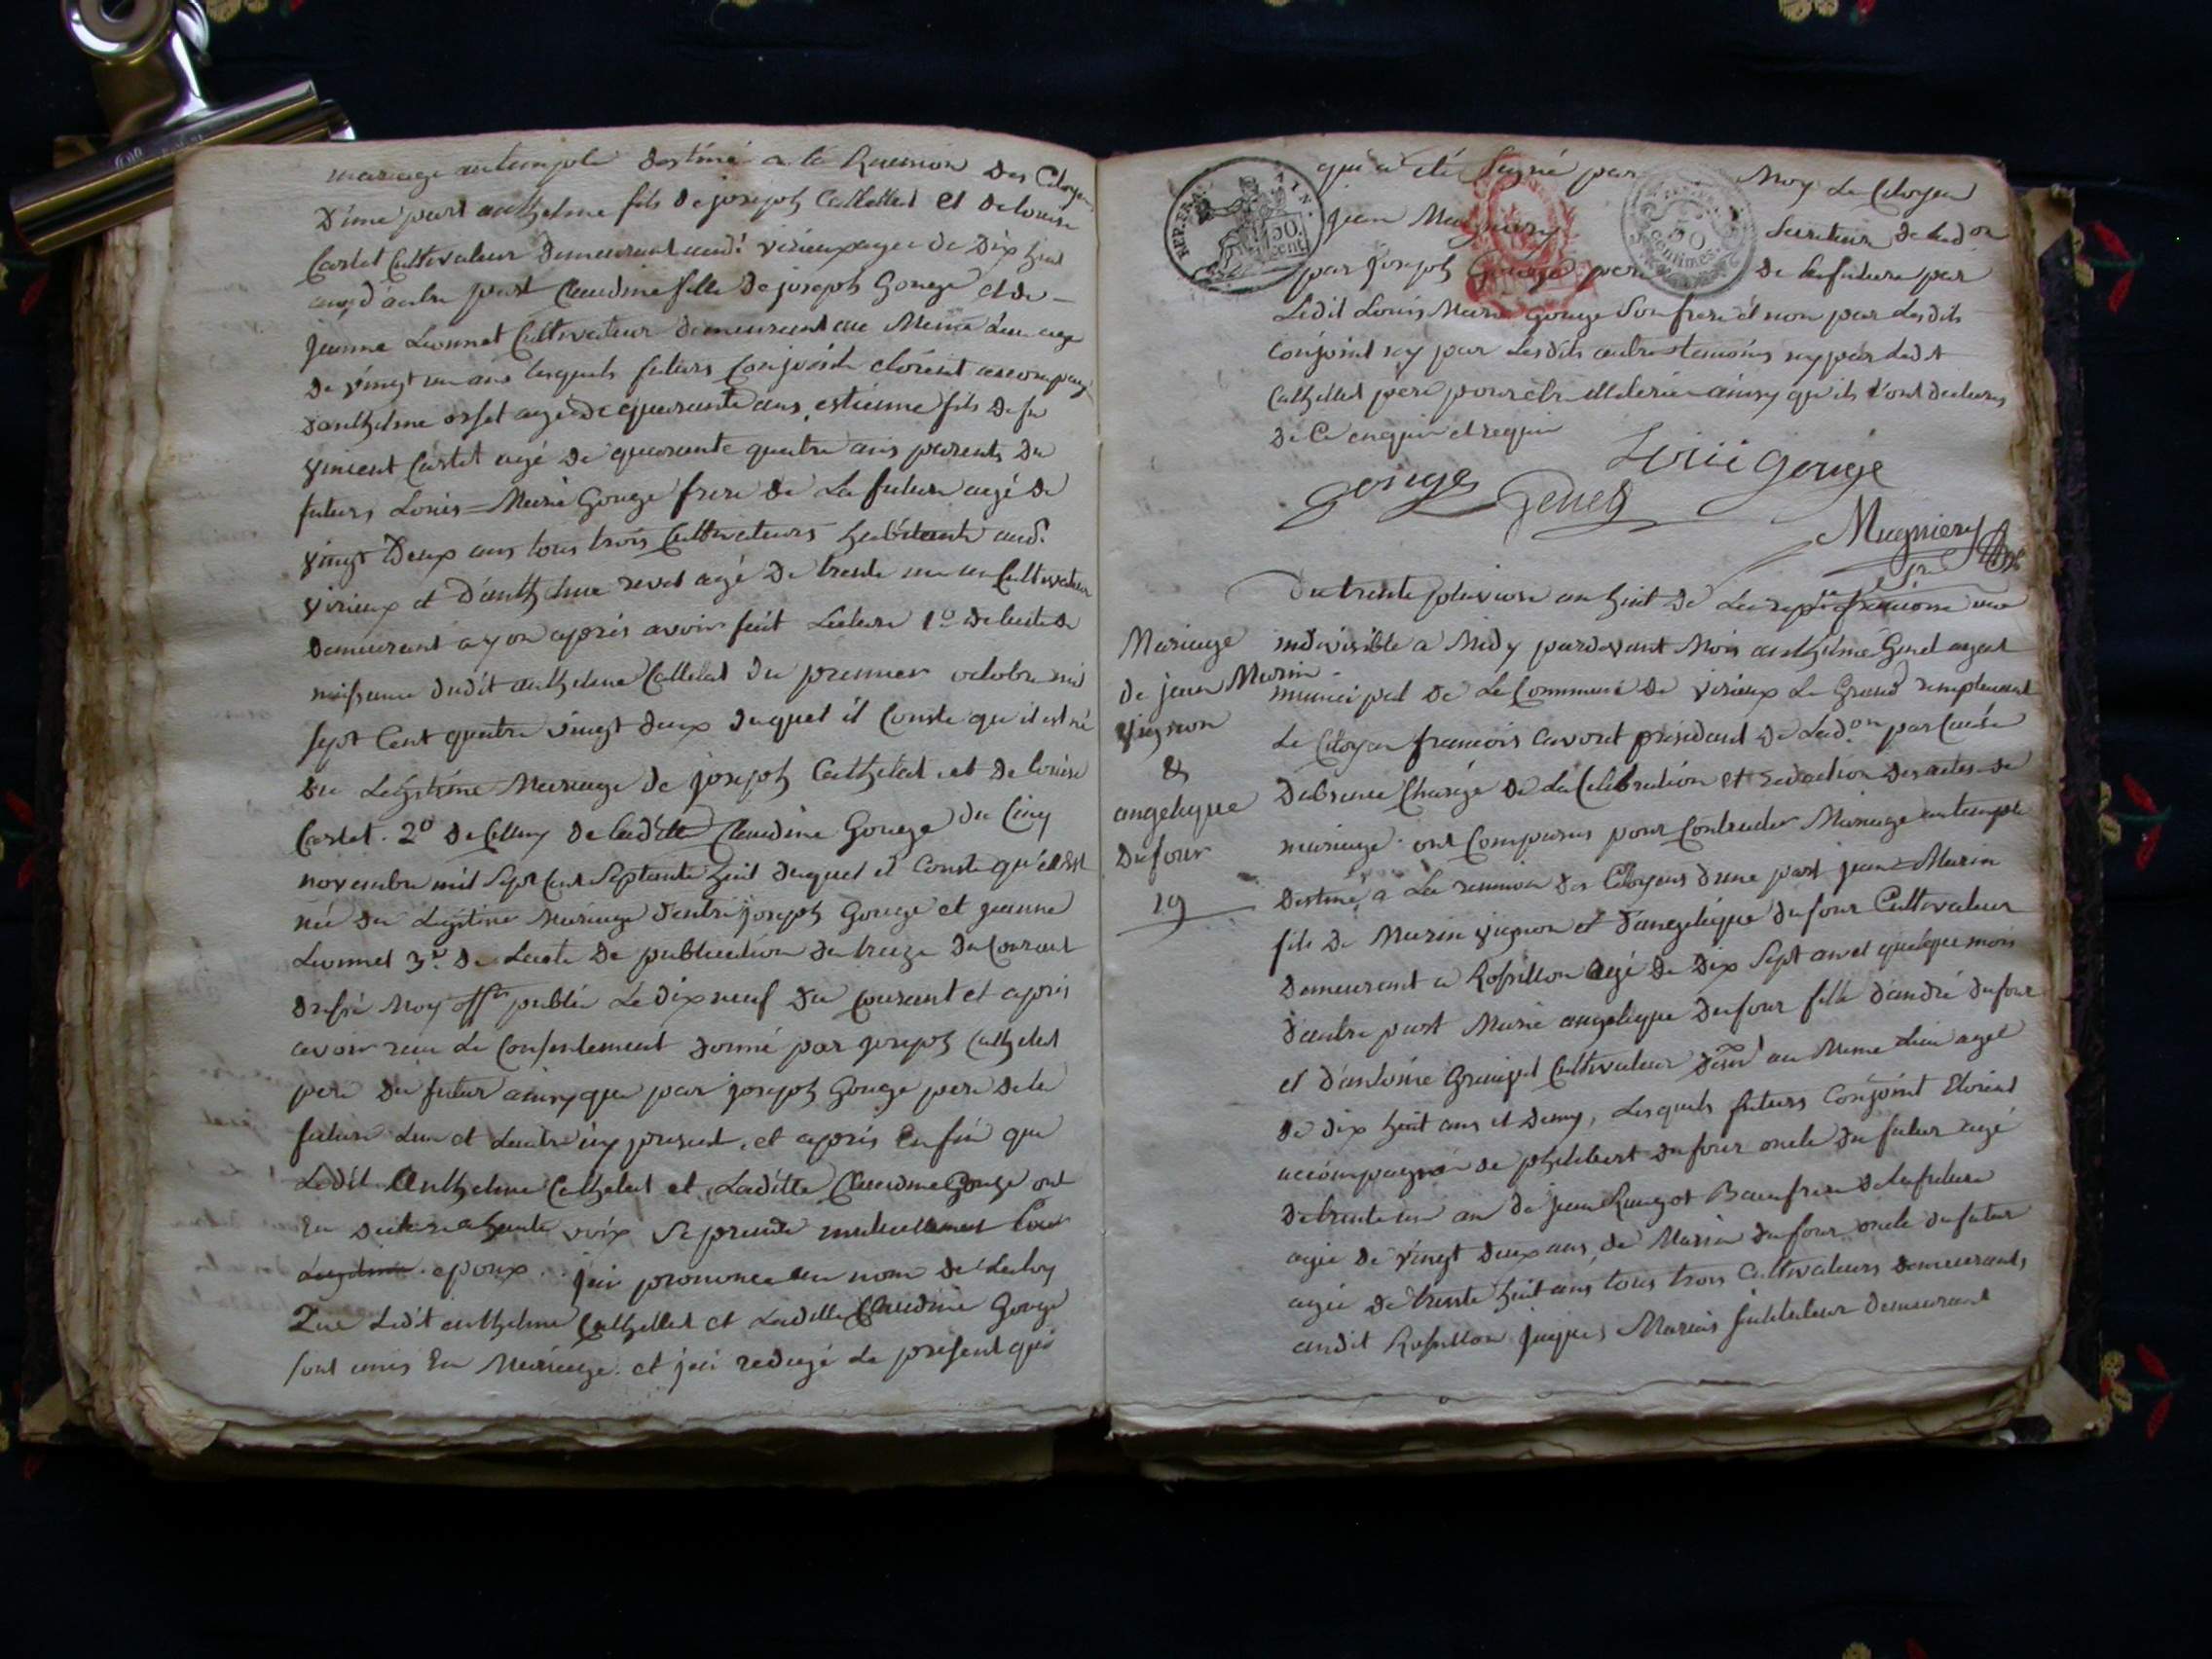 mariage au temple destiné a la Reunion des Citoyens
d'une part anthelme fils de joseph Cathellet et de louise
Castet Cultivateur demeurant aud.t virieux agée de dix huit
ans d'autre part Claudine fille de joseph Gouge et de
jeanne Lionnet Cultivateur demeurant au Meme Lieu age
de vingt un ans lesquels futurs Conjoints etoient accompag
d'anthelme orset agé de quarante ans, estienne fils de fu
vincent Castet agé de quarante quatre ans parents du
futurs Louis=Marie Gouge frere de La future agé de
vingt Deux ans tous trois Cultivateurs habitants aud.t
virieux et d'anthelme revet agé de trente un an Cultivateur
demeurant a yon après avoir fait Lecture 1.o de lacte de
naissance dudit anthelme Cathelet du premier octobre mil
sept Cent quatre vingt deux duquel il Conste qu'il est né
du Legitime Mariage de joseph Cathelat et de louise
Castet. 2.o de Celluy de laditte Claudine Gouge du Cinq
novembre mil Sept Cent Septante huit duquel il Conste qu'elle Est
née du Legitime Mariage d'entre joseph Gouge et jeanne
Lionnet 3.o de Lacte de publication du treize du Courant
dressé Moy off.er publié Le dix neuf du Courant et après
avoir recu Le Consentement donné par joseph Cathelet
pere du futur ainsy que par joseph Gouge pere de la
future Lun et Lautre icy present, et après Enfin que
Ledit Anthelme Cathelet et Laditte Claudine Gouge ont
Eu declaré a haute voix Se prendre mutuellement pour
Legitime epoux. jai prononcé au nom de La loy
Que Ledit anthelme Cathellet et Laditte Claudine Gouge
sont unis En Mariage. et jai redugé Le present qui
REP. FRA. AIN.
50. cent.
50 centimes
qui a été Signé par Moy Le Citoyen
jean Mugniery Secretaire de Lad.on
par joseph Gouge pere de la future par
Ledit Louis Marie Gouge Son frere et non par Lesdits
Conjoint ny par Lesdits autres temoins ny par Ledit
Cathellet pere pour etre illeterés ainsy qu'ils l'ont declarés
de Ce enquis et requis
gouge Genet Louis gouge
Mugniery
Sre
Mariage
de jean Marin
Vignon
&
angelique
Dufour
19
Du trente pluviose an huit de La rep.e francoise une
indivisible a Midy pardevant Moi anthelme Genet agent
municipal de La Commune de virieux Le Grand remplacant
Le Citoyen francois Cavoret président de Lad.on par Cause
dabsence Chargé de La Celebration et redaction des actes de
mariage. ont Comparus pour Contracter Mariage au temple
destiné a La reunion des Citoyens d'une part jean=Marin
fils de Marin vignon et d'angelique dufour Cultivateur
demeurant a Rossillon agé de Dix Sept an et quelque mois
d'autre part Marie angelique dufour fille d'andré dufour
et d'antoinie Granjet Cultivateur dem.t au Meme Lieu agée
de dix huit ans et demy, Lesquels futurs Conjoint Etoient
accompagnée de philibert dufour oncle du futur agé
de trente un an de jean Rougot Beaufrere de la future
agée de vingt deux ans, de Marin dufour oncle du futur
agée de trente huit ans tous trois Cultivateurs demeurants
audit Rossillon jaques Marin instituteur demeurant